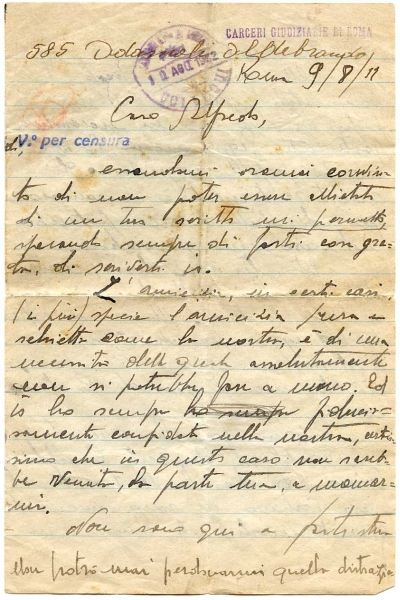 CARCERI GIUDIZIARIE DI ROMA
585 Aldebrando
Roma 9/8/
Caro Alfredo,
V.° per censura
essendomi oramai convin
to di non poter essere
di un tuo scritto mi permetto,
sperando sempre di farti cosa gra-
ta, di scriverti io.
L'amicizia, in certi casi,
(i più) specie l'amicizia pura e
schietta come la nostra, è di una
necessità della quale assolutamente
non si potrebbe fare a meno. Ed
io ho sempre fiducio-
samente confidato nella nostra, certis
simo che in questo caso non sareb-
be venuta, da parte tua, a mancar-
mi.
Non sono qui a
Non potrò mai perdonarmi quella distrazio